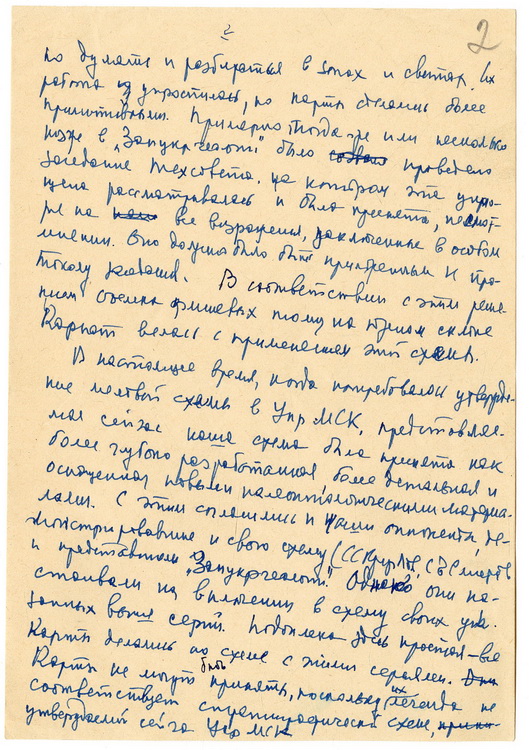 2
2
но думать и разбираться в зонах и свитах. Их
работа упростилась, но карты стались более
примитивными. Примерно тогда же или несколько
позже в "Запукргеологии" было проведено
заседание Техсовета, на котором эта упро-
щена рассматривалась и была принята, несмот-
ря на все возражения, заключенные в особом
мнении. Оно должно было быть приложенным к про-
токолу заседания. В соответствии с этим реше-
нием съемка флишевых толщ на южном склоне
Карпат велась с применением этой схемы.
В настоящее время, когда потребовалось утвержде-
ние легенды схемы в Укр МСК, представляе-
мая сейчас наша схема была принята как
более глубоко разработанная, более детальная и
оснащенная новыми палеонтологическими материа-
лами. С этим согласились и наши оппоненты, де-
монстрировавшие и свою схему (СС Круглов, СЕ Смирнов
и представители "Запукргеологии". Однако они на-
стаивали на включении в схему своих ука-
занных выше серий. Подоплека здесь простая – все
карты делались по схеме с этими сериями.
Карты не могут быть приняты, поскольку их легенда не
соответствует стратиграфической схеме,
утверждаемой сейчас Укр МСК.